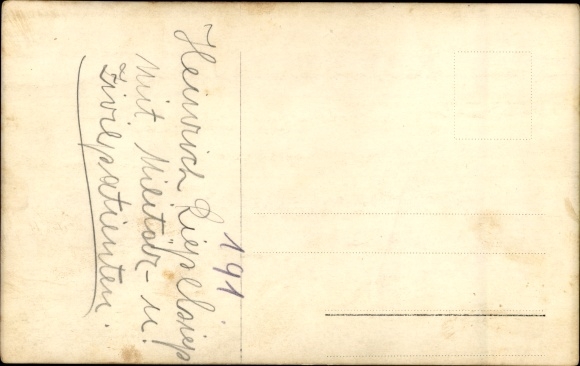 Heinrich Riepelsiep
mit Militär- u.
Zivilpatienten.
191